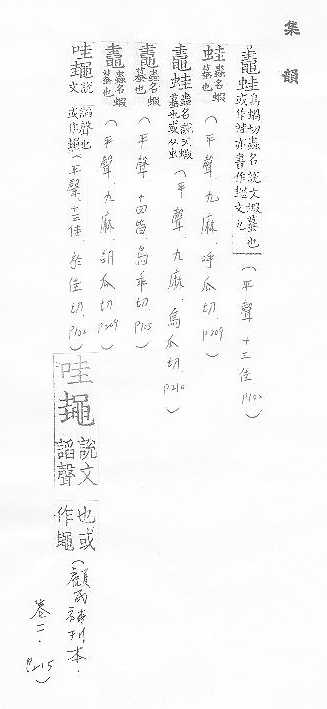 集韻
鼃蛙烏蝸切蟲名說文蝦蟇也或作蛙亦書作𪓷文九(平聲.十三佳.P.102)
蛙蟲名蝦蟇也(平聲.九麻.呼瓜切.P.209)
鼃蛙蟲名說文蝦蟇也或从虫(平聲.九麻.烏瓜切.P.210)
鼃蟲名蝦蟇也(平聲.十四皆.烏乖切.P.105)
鼃蟲名蝦蟇也(平聲.九麻.胡瓜切.P.209)
哇䵷說文謟聲也或作䵷(平聲.十三佳.於佳切.P.102)
哇䵷說文謟聲也或作䵷(顧氏補刊本.卷二.P.215)